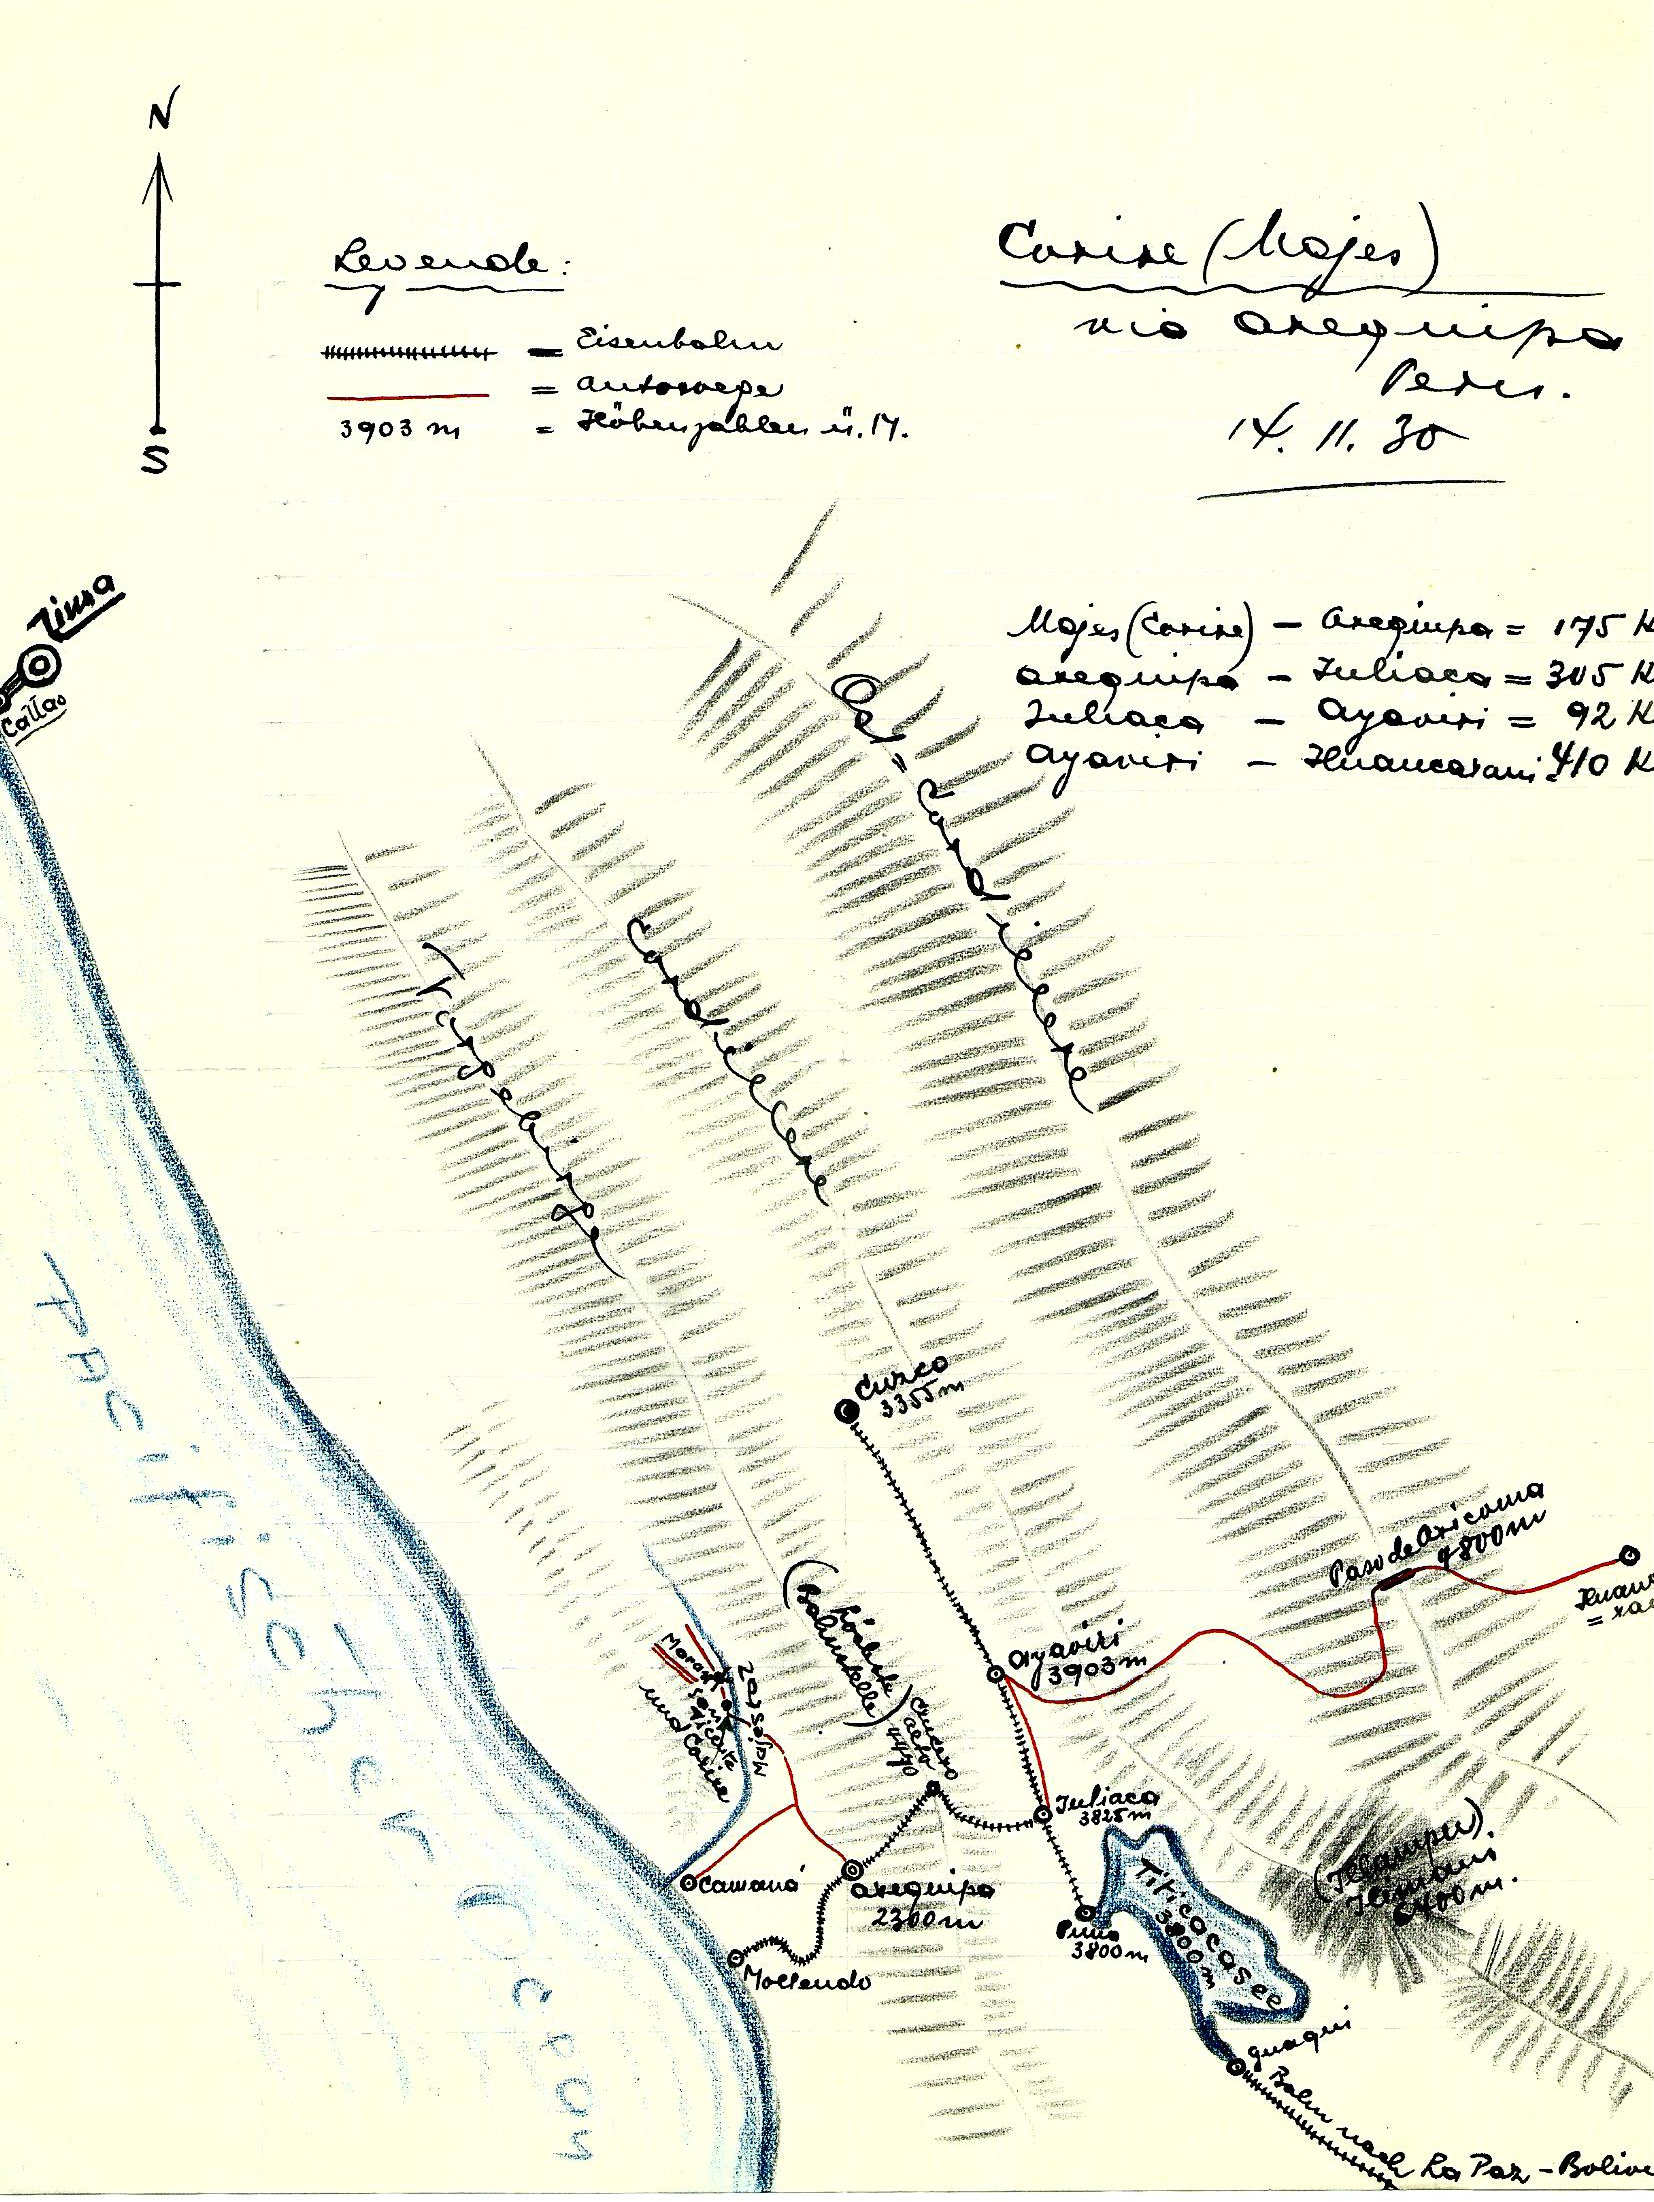 N
S
Legende:
= Eisenbahn
= Autowege
3903 m = Höhenzahlen ü. M.
Corire (Majes)
via Arequipa
Peru.
14. 11. 30
Majes (Corire) – Arequipa = 175 K
Arequipa – Juliaca = 305 K
Juliaca – Ayaviri = 92 K
Ayaviri – Huancarani 410 K
Lima
Callao
Ost-Cordillere
Cordillere
Pacifischer Ocean
Cuzco
3355 m
Paso de Aricoma
4800 m
Huanca
Ayaviri
3903 m
(Höchste
Bahnstelle)
Crucero
alto
4470
Majes
und Corire
Juliaca
3825 m
Camaná
Arequipa
2300 m
Mollendo
Puno
3800 m
Titicacasee
3800 m
(Illampu)
Illimani
6400 m.
Guaqui
Bahn nach La Paz – Bolivi